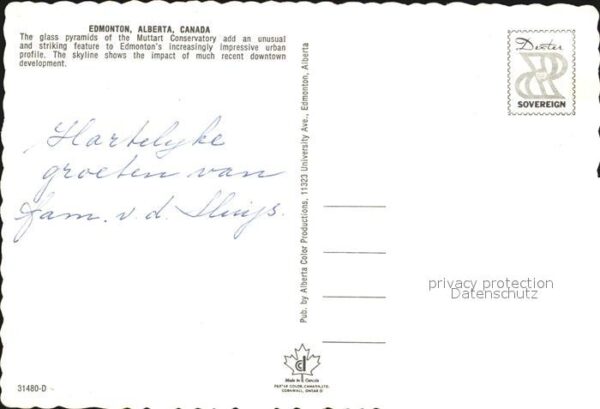 EDMONTON, ALBERTA, CANADA
The glass pyramids of the Muttart Conservatory add an unusual
and striking feature to Edmonton's increasingly impressive urban
profile. The skyline shows the impact of much recent downtown
development.
Hartelyke
groeten van
fam. v. d. Sluijs.
Pub. by Alberta Color Productions, 11323 University Ave., Edmonton, Alberta
Dexter
SOVEREIGN
privacy protection
Datenschutz
Made in Canada
DEXTER COLOR CANADA LTD.
CORNWALL, ONTARIO
31480-D